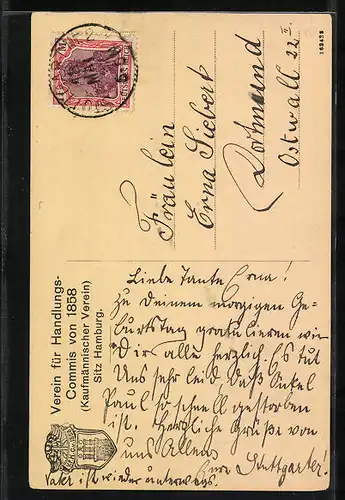 Verein für Handlungs-
Commis von 1858
(Kaufmännischer Verein)
Sitz Hamburg.
163426
Fräulein
Erna Siebert
Dortmund
Ostwall 22 II.
Liebe Tante Erna!
Zu deinem morgigen Ge-
burtstag gratulieren wir
Dir alle herzlich. Es tut
uns sehr leid, daß Onkel
Paul so schnell gestorben
ist. Herzliche Grüße von
uns Allen
Eure Stuttgarter!
Vater ist wieder unterwegs.